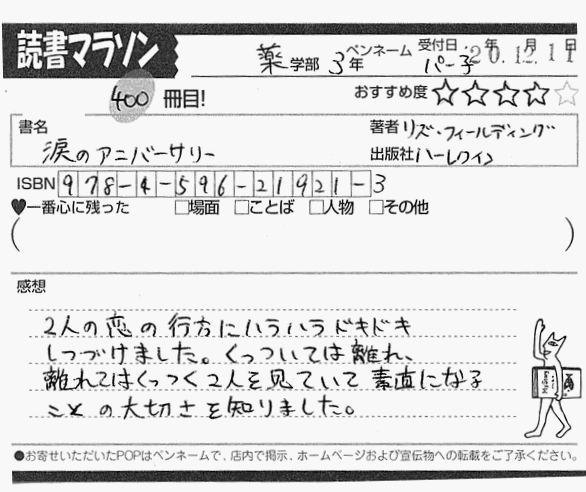 読書マラソン
薬学部 3年 ペンネーム パー子 受付日 20年 12月 11日
400 冊目! おすすめ度 ☆☆☆☆☆
書名 著者 リズ・フィールディング
涙のアニバーサリー 出版社 ハーレクイン
ISBN 978-4-596-21921-3
♥一番心に残った □場面 □ことば □人物 □その他
( )
感想
2人の恋の行方にハラハラドキドキ
しつづけました。くっついては離れ、
離れてはくっつく2人を見ていて素直になる
ことの大切さを知りました。
●お寄せいただいたPOPはペンネームで、店内で掲示、ホームページおよび宣伝物への転載をご了承ください。